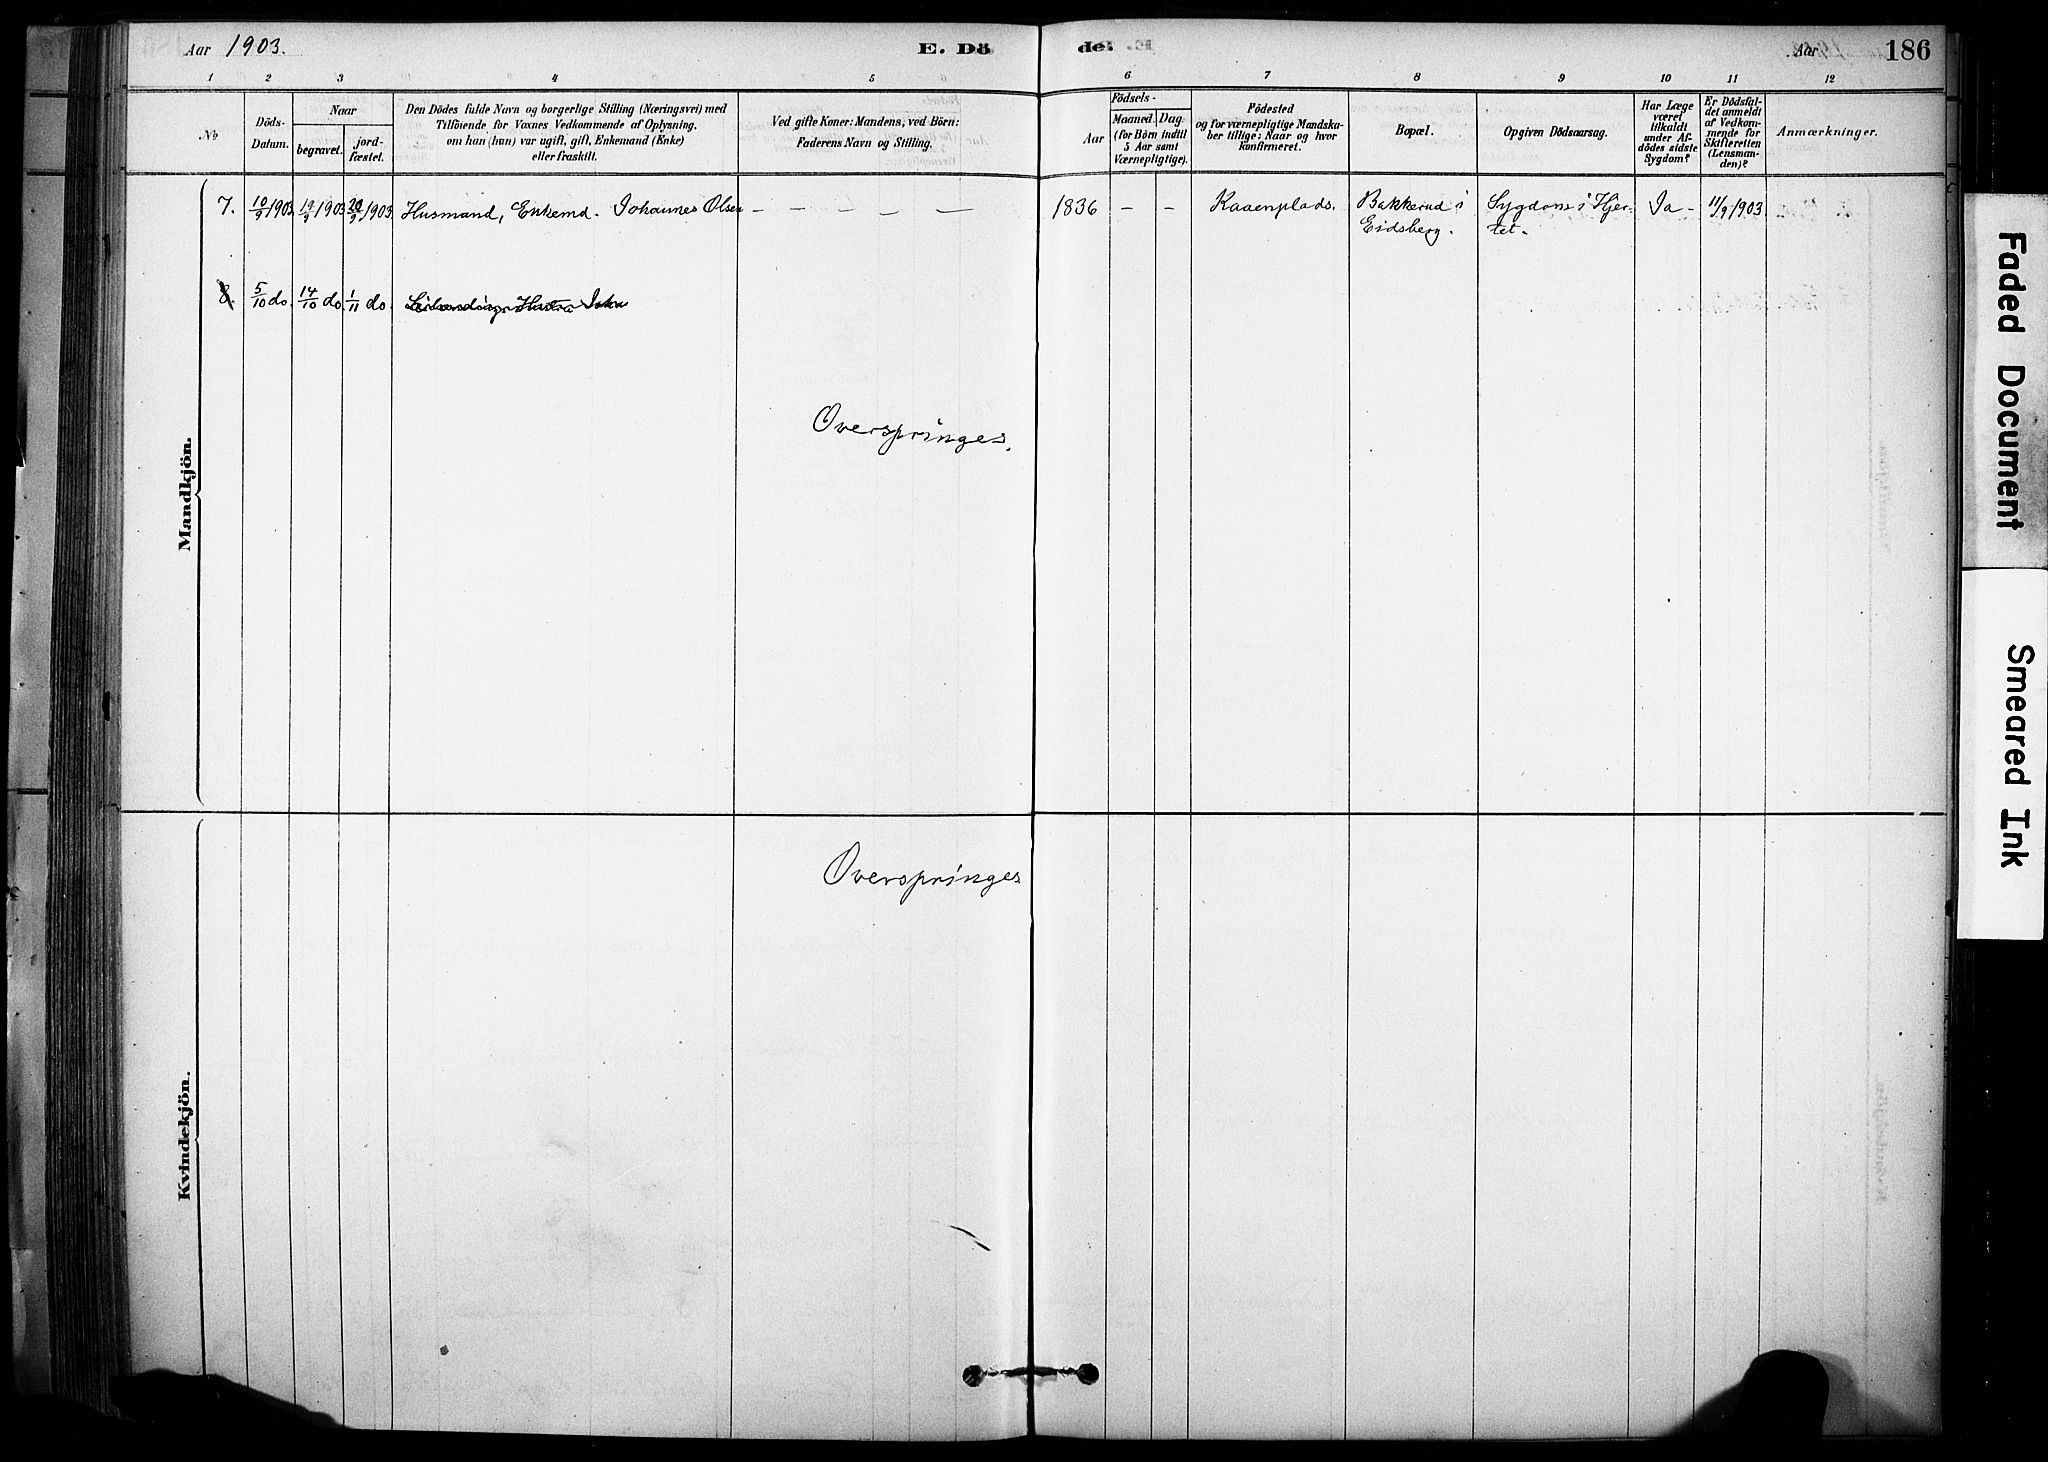 Aar 1903.
E. Dö de.
Aar 186
1 2 3 4 5 6 7 8 9 10 11 12
No
Döds-
Datum.
Naar
begravet.
jord-
fæstet.
Den Dödes fulde Navn og borgerlige Stilling (Næringsvei) med
Tilföiende for Voxnes Vedkommende af Oplysning.
om han (hun) var ugift, gift, Enkemand (Enke)
eller fraskilt.
Ved gifte Koner: Mandens, ved Börn:
Faderens Navn og Stilling.
Aar
Födsels-
Maaned. Dag.
(for Börn indtil
5 Aar samt
Værnepligtige).
Födested
og for værnepligtige Mandska-
ber tillige: Naar og hvor
konfirmeret.
Bopæl.
Opgiven Dödsaarsag.
Har Læge
været
tilkaldt
under Af-
dödes sidste
Sygdom?
Er Dödsfal-
det anmeldt
af Vedkom-
mende for
Skifteretten
(Lensman-
den)?
Anmærkninger.
Mandkjön.
7. 10/9 1903 19/9 1903 20/9 1903 Husmand, Enkemd. Johannes Olsen — — — — — 1836 — — Kaaenplads. Bakkerud i Sygdom i Hjer- Ja - 11/9 1903.
Eidsberg. tet.
8. 5/10 do. 14/10 do. 1/11 do.
Overspringes.
Kvindekjön.
Overspringes
Faded Document
Smeared Ink